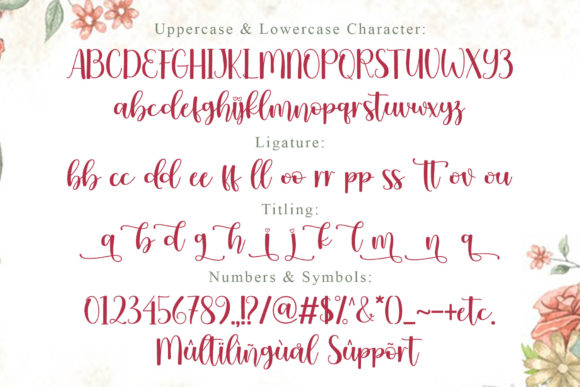 Uppercase & Lowercase Character:
ABCDEFGHIJKLMNOPQRSTUVWXYZ
abcdefghijklmnopqrstuvwxyz
Ligature:
bb cc dd ee ff ll oo rr pp ss tt ov ou
Titling:
a b d g h i j k l m n q
Numbers & Symbols:
0123456789.,!?/@#$%^&*()_~-+etc.
Múltilingùal Sûppõrt